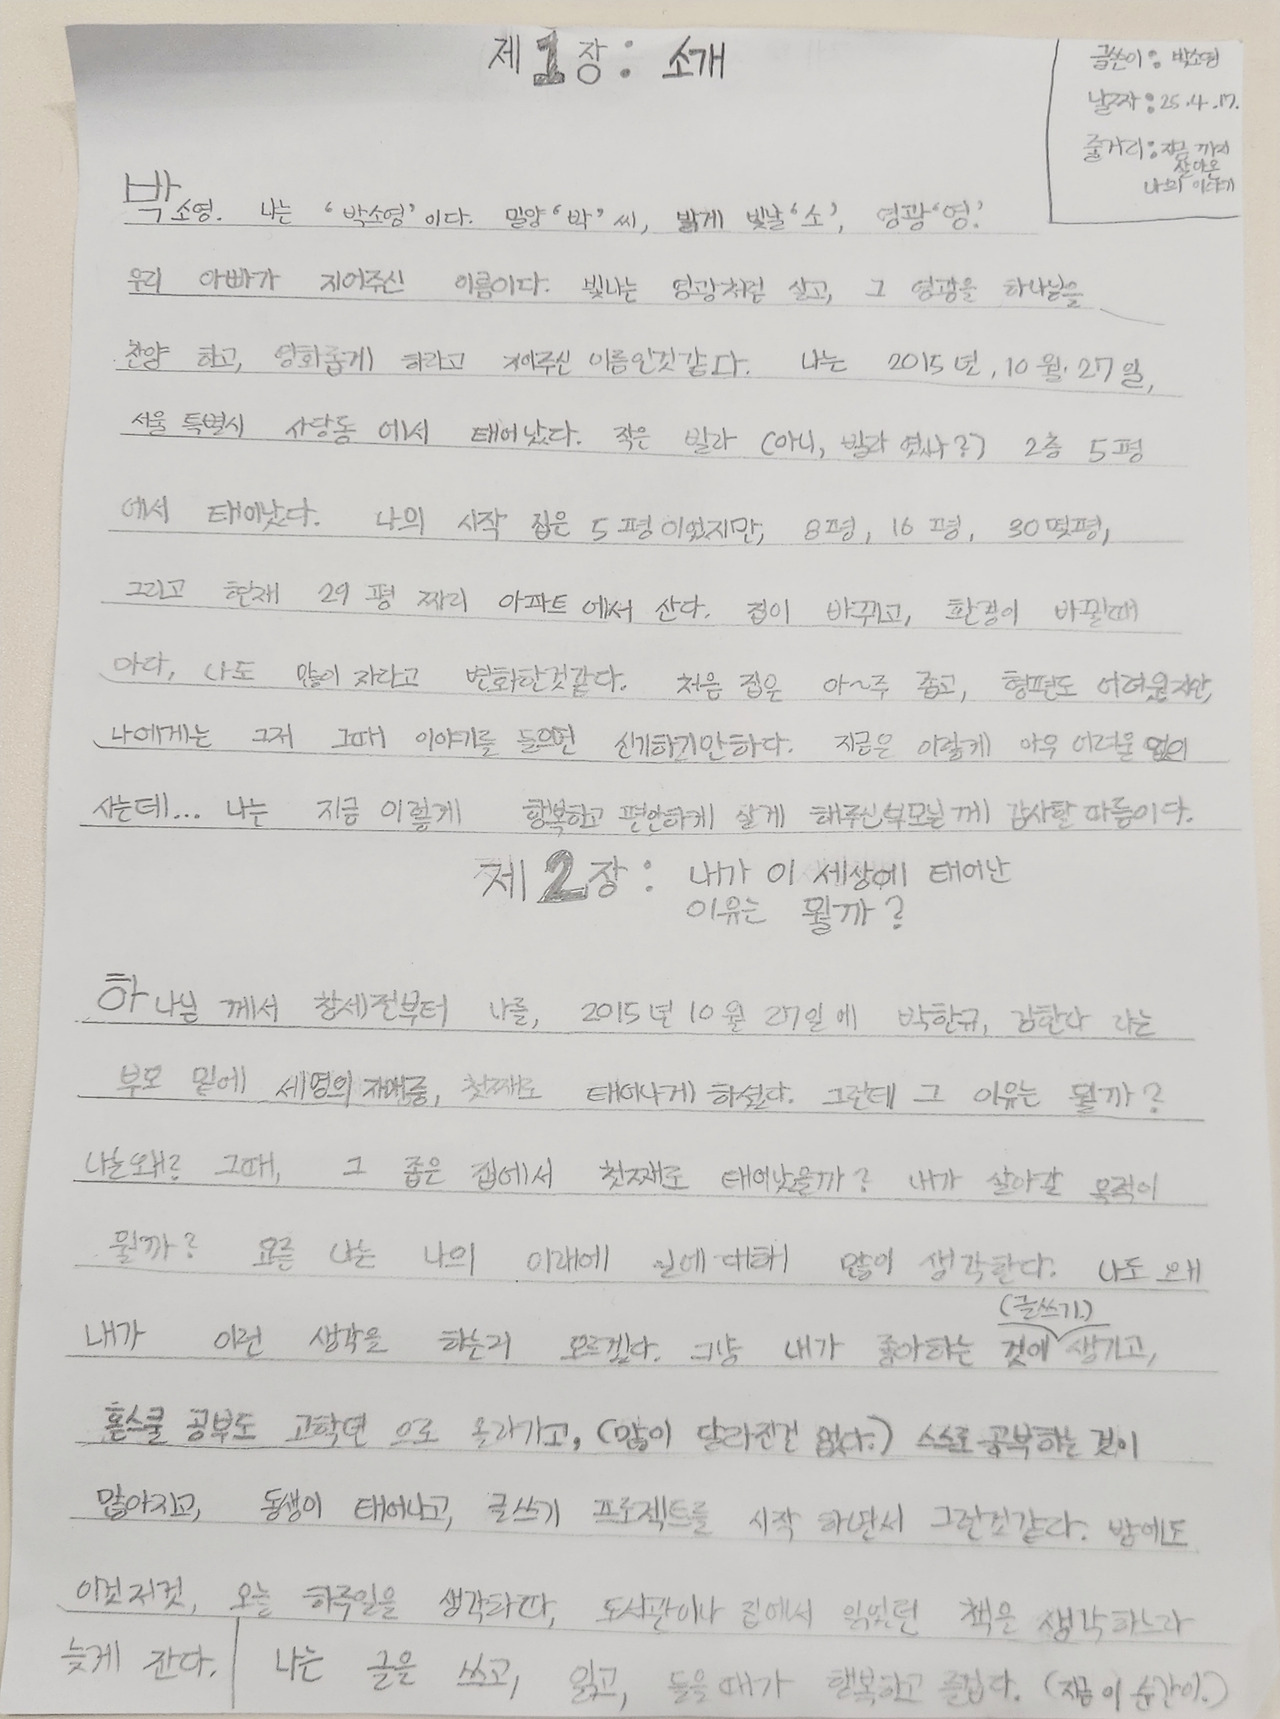 제1장: 소개
글쓴이: 박소영
날짜: 25.4.17.
줄거리: 지금 까지
살아온
나의 이야기
박소영. 나는 ‘박소영’이다. 밀양‘박’씨, 밝게 빛날‘소’, 영광‘영’.
우리 아빠가 지어주신 이름이다. 빛나는 영광처럼 살고, 그 영광을 하나님을
찬양 하고, 영화롭게 하라고 지어주신 이름인것같다. 나는 2015년, 10월 27일,
서울특별시 사당동 에서 태어났다. 작은 빌라 (아니, 빌라 였나?) 2층 5평
에서 태어났다. 나의 시작 집은 5평이었지만, 8평, 16평, 30몇평,
그리고 현재 29평 짜리 아파트에서 산다. 집이 바뀌고, 환경이 바뀔때
마다, 나도 많이 자라고 변화한것같다. 처음 집은 아~주 좁고, 형편도 어려웠지만,
나에게는 그저 그때 이야기를 들으면 신기하기만하다. 지금은 이렇게 아무 어려움 없이
사는데... 나는 지금 이렇게 행복하고 편안하게 살게 해주신 부모님께 감사할 따름이다.
제2장: 내가 이 세상에 태어난
이유는 뭘까?
하나님 께서 창세전부터 나를, 2015년 10월 27일에 박한규, 라는
부모 밑에 세명의 자매중, 첫째로 태어나게 하셨다. 그런데 그 이유는 뭘까?
나는왜? 그때, 그 좁은 집에서 첫째로 태어났을까? 내가 살아갈 목적이
뭘까? 요즘 나는 나의 미래에 대해 많이 생각한다. 나도 왜
내가 이런 생각을 하는지 모르겠다. 그냥 내가 좋아하는 것이 (글쓰기.) 생기고,
홈스쿨 공부도 고학년 으로 올라가고, (많이 달라진건 없다.) 스스로 공부하는 것이
많아지고, 동생이 태어나고, 글쓰기 프로젝트를 시작 하면서 그런것같다. 밤에도
이것저것, 오늘 하루일을 생각하다, 도서관이나 집에서 읽었던 책을 생각하느라
늦게 잔다. 나는 글을 쓰고, 읽고, 들을때가 행복하고 즐겁다. (지금 이 순간이.)